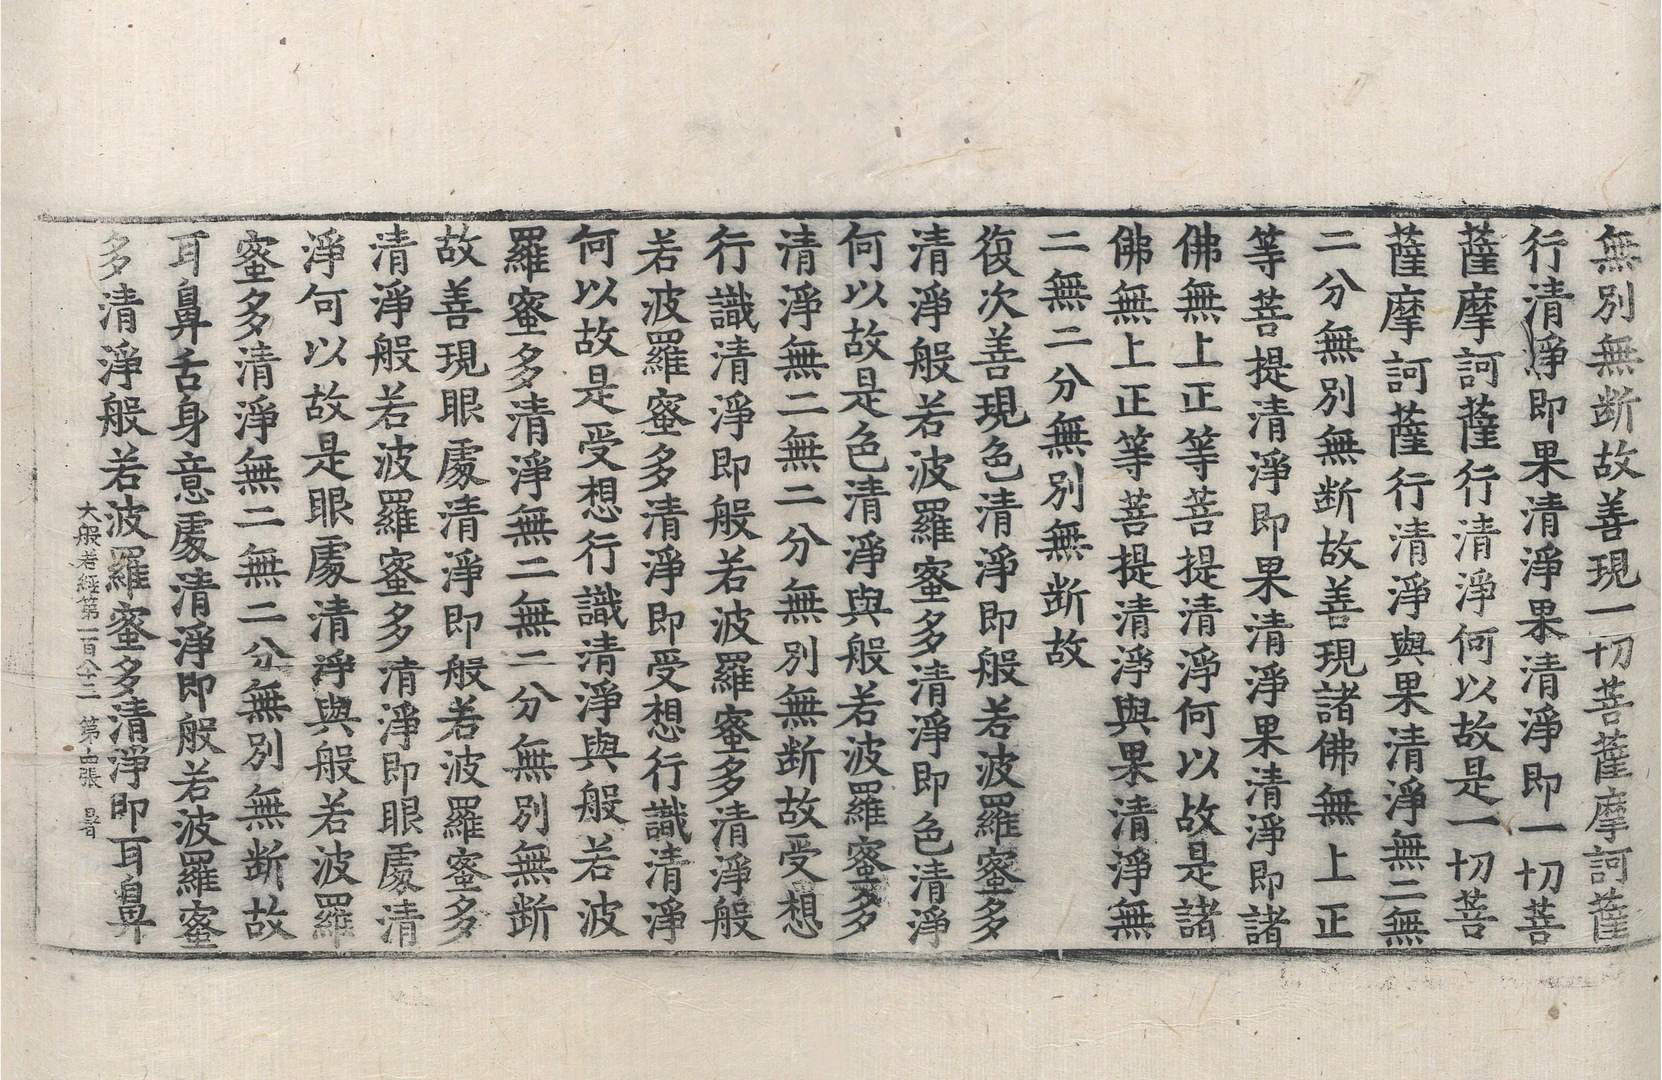 無別無断故善現一切菩薩摩訶薩
行清淨即果清淨果清淨即一切菩
薩摩訶薩行清淨何以故是一切菩
薩摩訶薩行清淨與果清淨無二無
二分無別無断故善現諸佛無上正
等菩提清淨即果清淨果清淨即諸
佛無上正等菩提清淨何以故是諸
佛無上正等菩提清淨與果清淨無
二無二分無別無断故
復次善現色清淨即般若波羅蜜多
清淨般若波羅蜜多清淨即色清淨
何以故是色清淨與般若波羅蜜多
清淨無二無二分無別無断故受想
行識清淨即般若波羅蜜多清淨般
若波羅蜜多清淨即受想行識清淨
何以故是受想行識清淨與般若波
羅蜜多清淨無二無二分無別無断
故善現眼處清淨即般若波羅蜜多
清淨般若波羅蜜多清淨即眼處清
淨何以故是眼處清淨與般若波羅
蜜多清淨無二無二分無別無断故
耳鼻舌身意處清淨即般若波羅蜜
多清淨般若波羅蜜多清淨即耳鼻
大般若經第一百八十二 第十四張 暑